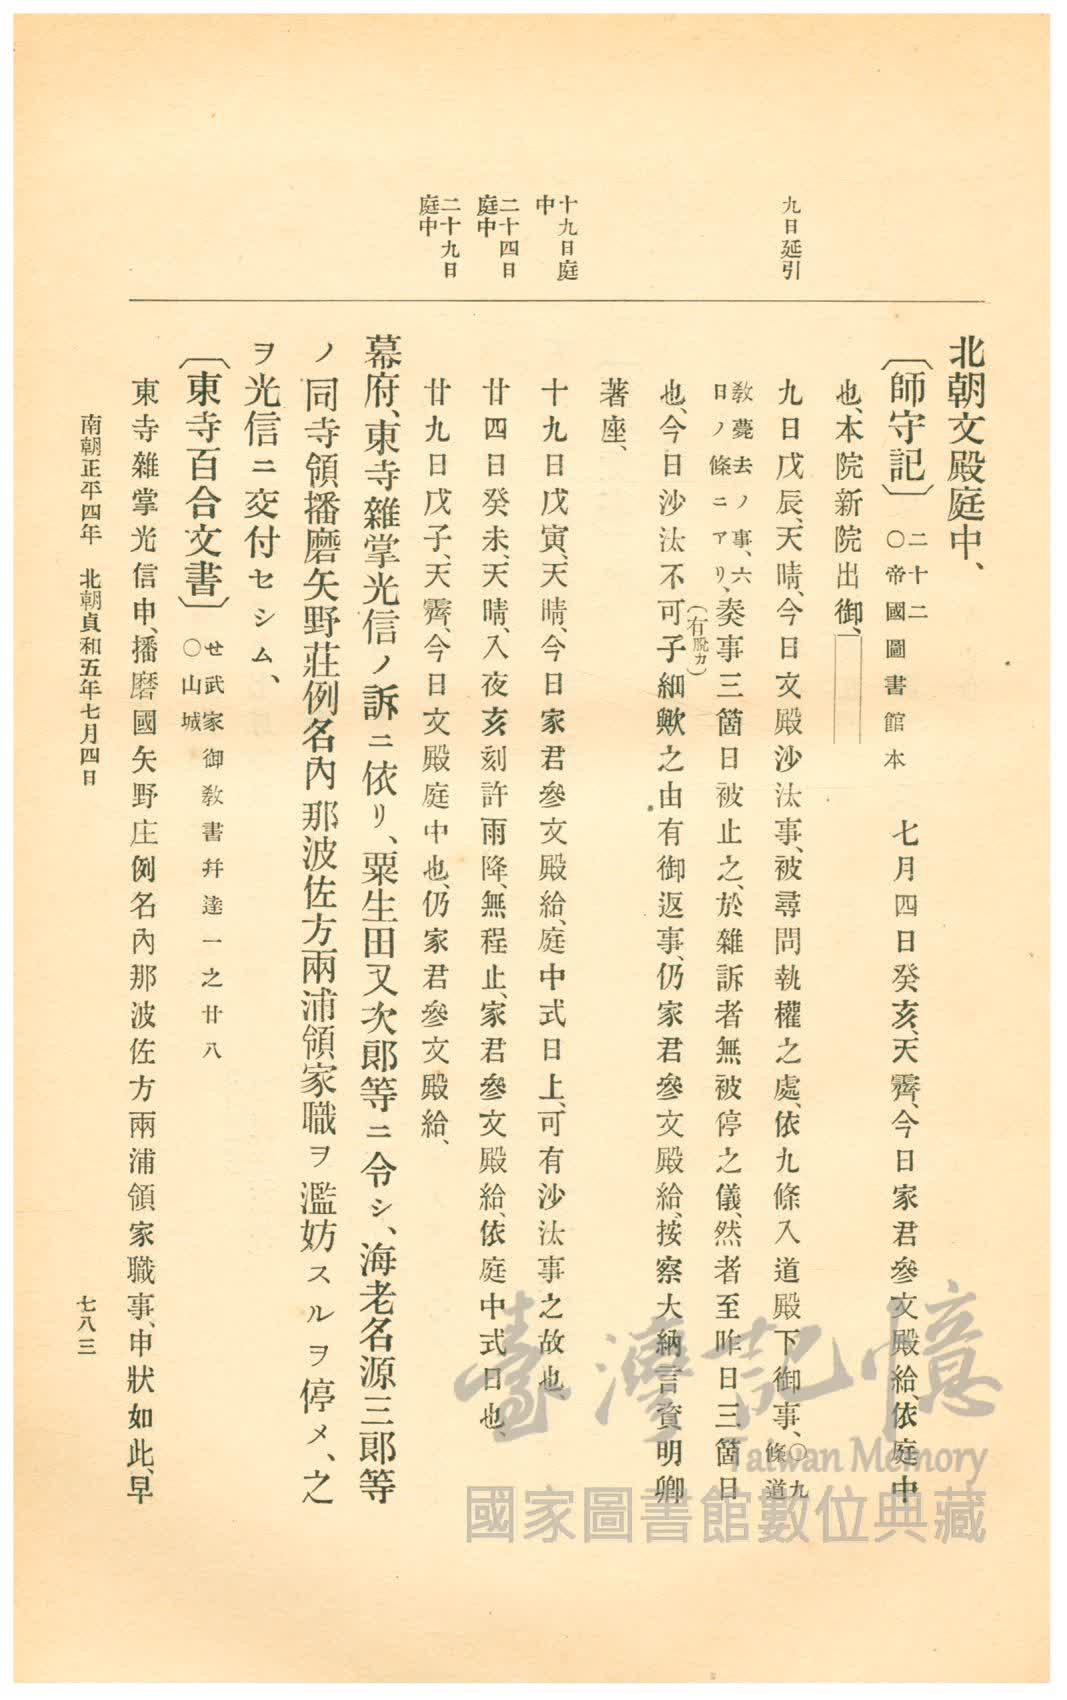 九日延引
十九日庭
中
二十四日
庭中
二十九日
庭中
北朝文殿庭中、
〔師守記〕 二十二 ○帝國圖書館本 七月四日癸亥、天霽、今日家君參文殿給、依庭中
也、本院新院出御、
九日戊辰、天晴、今日文殿沙汰事、被尋問執權之處、依九條入道殿下御事、○九條道
敎薨去ノ事、六日ノ條ニアリ、奏事三箇日被止之、於雜訴者無被停之儀、然者至昨日三箇日
也、今日沙汰不可(有脫カ)子細歟之由有御返事、仍家君參文殿給、按察大納言資明卿
著座、
十九日戊寅、天晴、今日家君參文殿給、庭中式日上、可有沙汰事之故也、
廿四日癸未、天晴、入夜亥刻許雨降、無程止、家君參文殿給、依庭中式日也、
廿九日戊子、天霽、今日文殿庭中也、仍家君參文殿給、
幕府、東寺雜掌光信ノ訴ニ依リ、粟生田又次郞等ニ令シ、海老名源三郞等
ノ同寺領播磨矢野莊例名內那波佐方兩浦領家職ヲ濫妨スルヲ停メ、之
ヲ光信ニ交付セシム、
〔東寺百合文書〕 せ武家御敎書幷達一之廿八 ○山城
東寺雜掌光信申、播磨國矢野庄例名內那波佐方兩浦領家職事、申狀如此、早
南朝正平四年 北朝貞和五年七月四日
七八三
臺灣記憶
Taiwan Memory
國家圖書館數位典藏